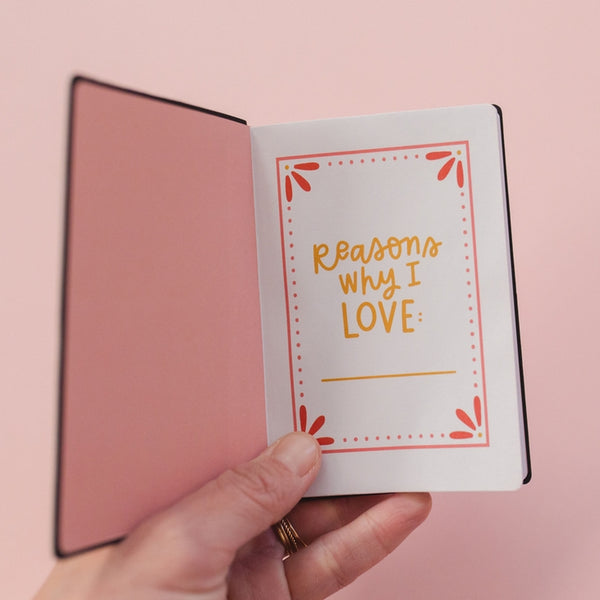 Reasons
why I
LOVE: